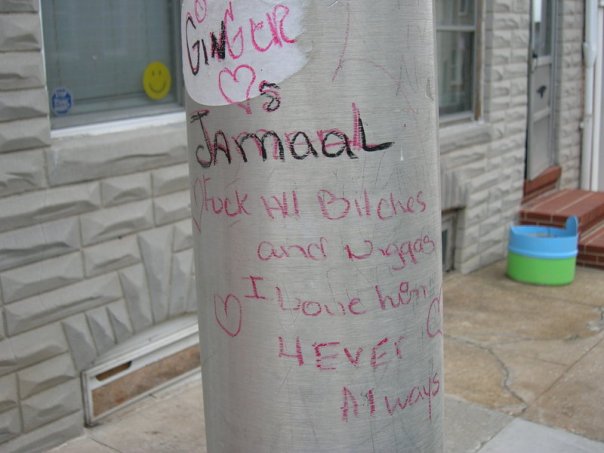 GinGer
♡s
JAmaaL
Fuck All Bitches
and Niggas
I Love him
4EVEr
Always